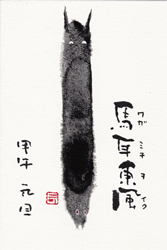 ワガミチヲイク
馬耳東風
甲午 元旦